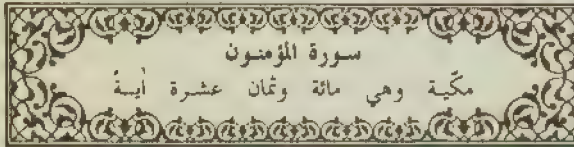 سورة المؤمنون
مكّية وهي مائة وثمان عشرة أيسةً